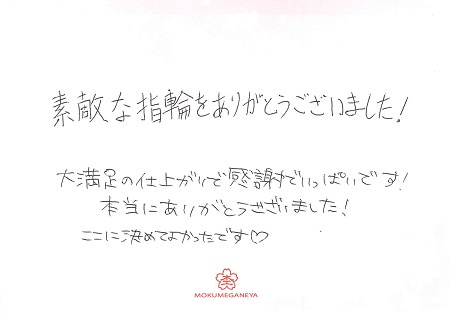 素敵な指輪をありがとうございました!
大満足の仕上がりで感謝でいっぱいです!
本当にありがとうございました!
ここに決めてよかったです♡
MOKUMEGANEYA